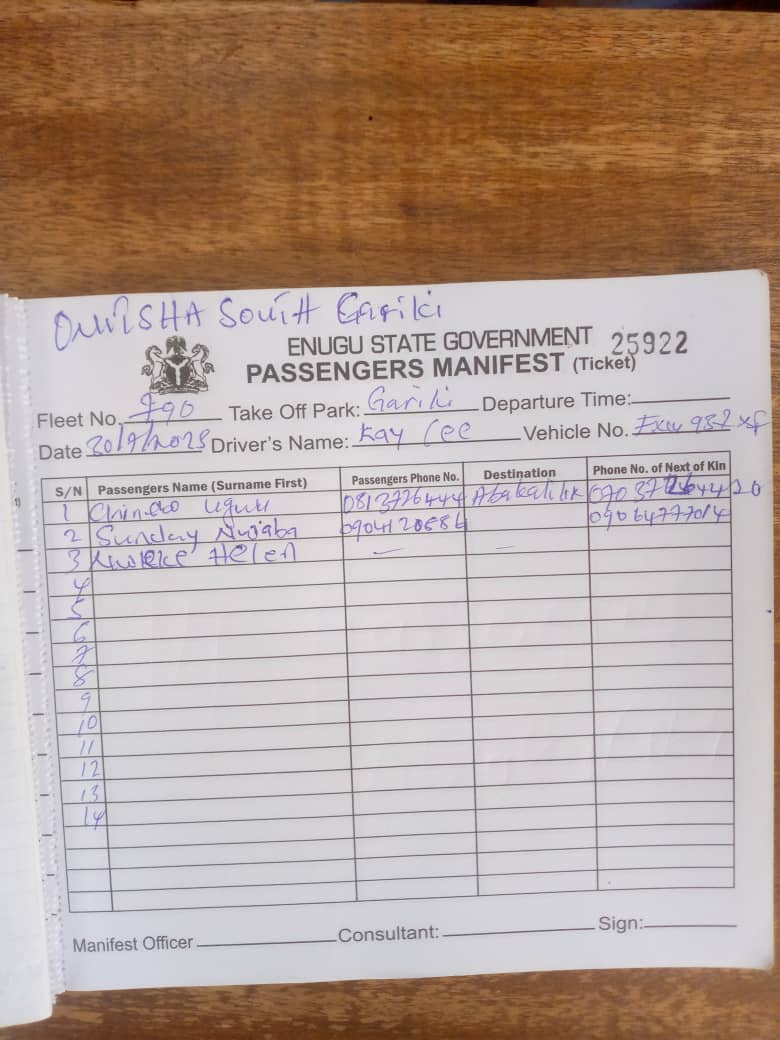 ONITSHA SOUTH Gariki
ENUGU STATE GOVERNMENT 25922
PASSENGERS MANIFEST (Ticket)
Fleet No. 890 Take Off Park: Gariki Departure Time:
Date 30/9/2025 Driver's Name: Kay Cee Vehicle No. 982 XF
S/N Passengers Name (Surname First) Passengers Phone No. Destination Phone No. of Next of Kin
1 Chinedo Ugwu 0813776444
2 Sunday 0904120586 09064777014
3 Helen — —
4
5
6
7
8
9
10
11
12
13
14
Manifest Officer Consultant: Sign: